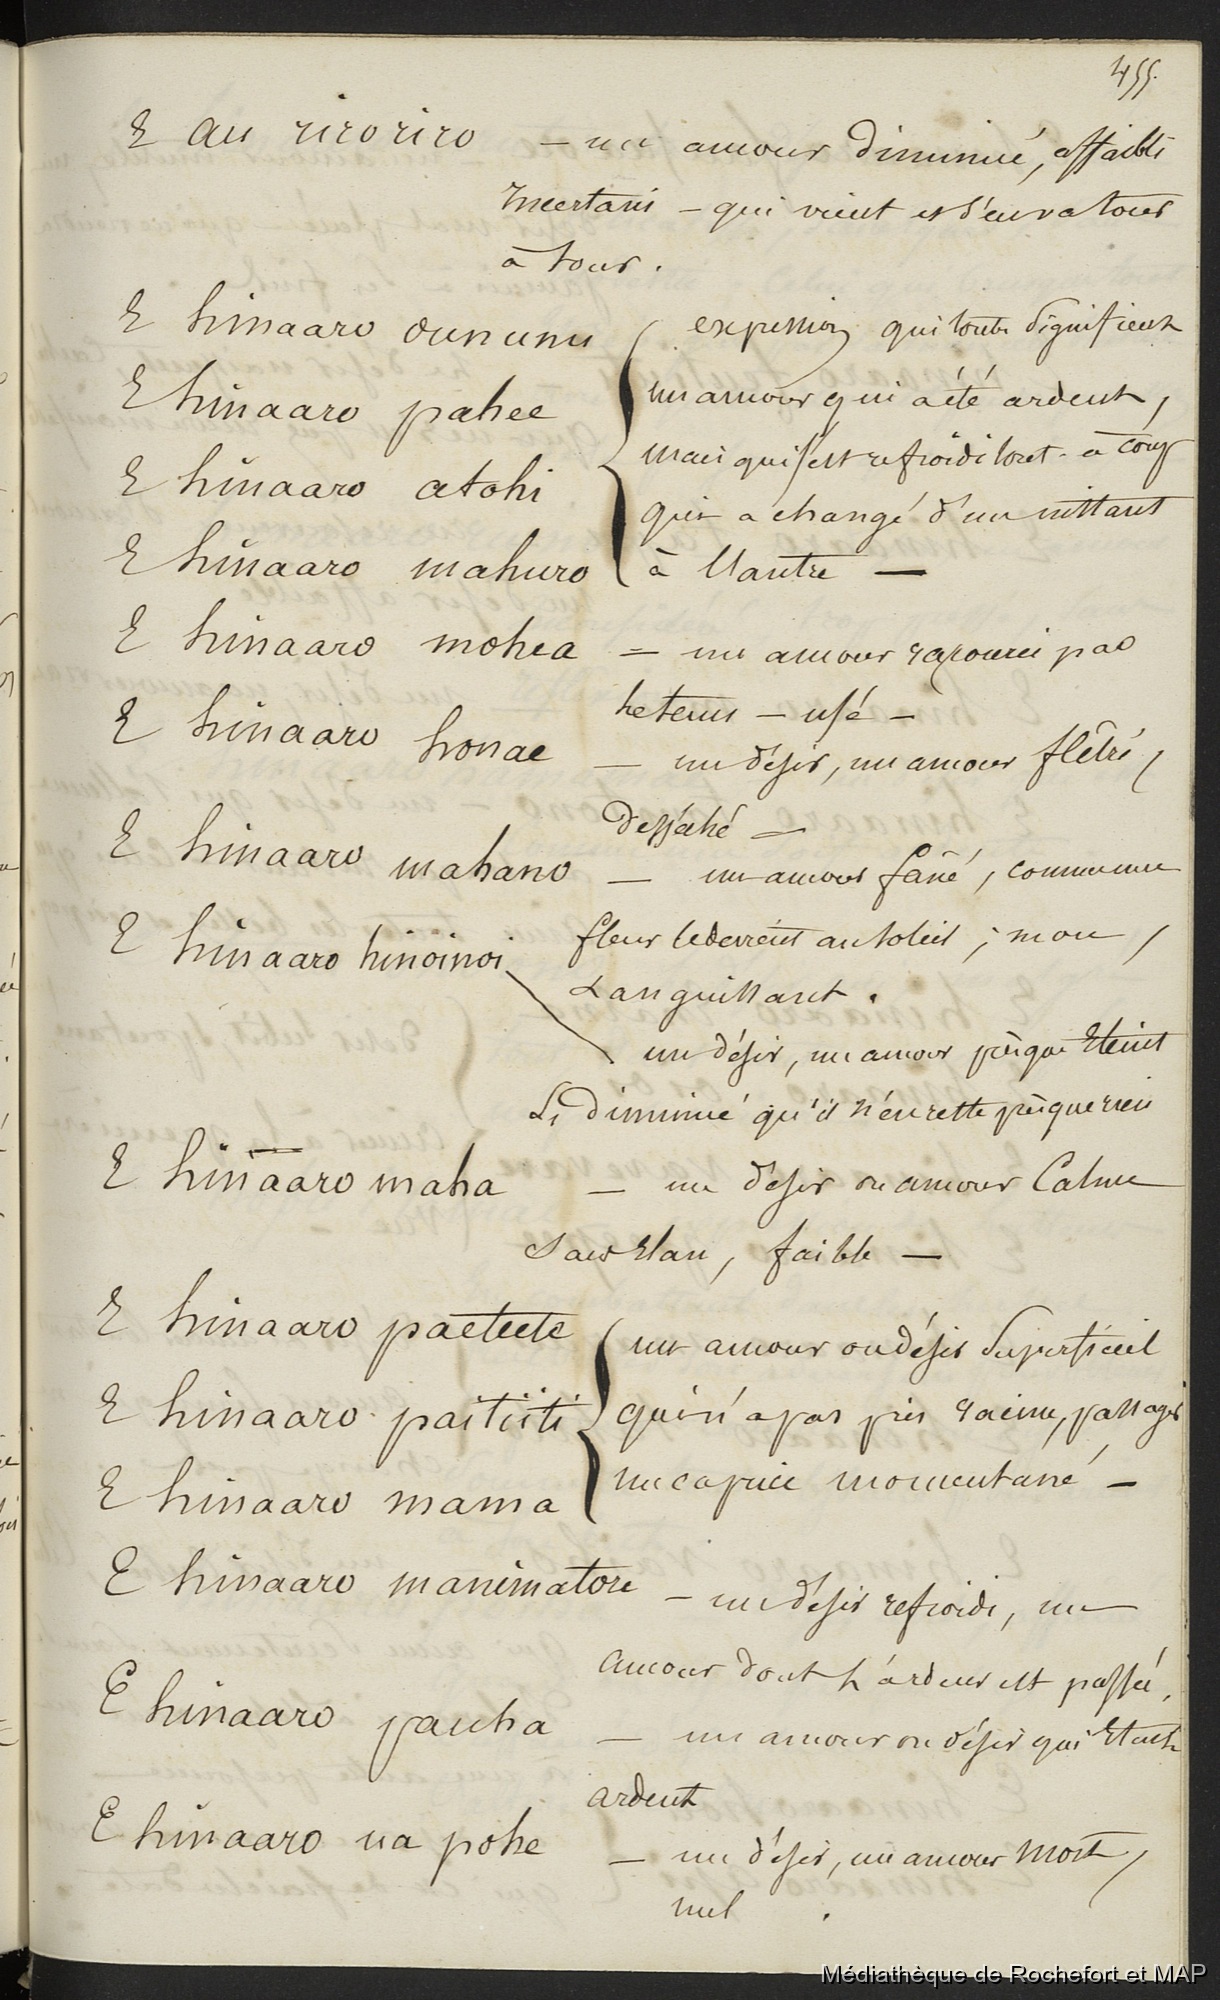 455.
E au riroriro — un amour diminué, affaibli
incertain — qui vient et s'en va tour
à tour.
E hinaaro oununu
E hinaaro pahee
E hinaaro atohi
E hinaaro mahuro
expressions qui toutes signifient
un amour qui a été ardent,
mais qui s'est refroidi tout à coup
qui a changé d'un instant
à l'autre —
E hinaaro mohea = un amour racourci par
le tems — usé —
E hinaaro honae — un désir, un amour flêtri,
desséché —
E hinaaro mahano — un amour fâné, comme une
fleur le devient au soleil ; mou,
Languissant.
E hinaaro hinoinoi
un désir, un amour presque Eteint
Si diminué qu'il n'en reste presque rien
E hinaaro maha — un désir ou amour Calme
Sans Elan, faible —
E hinaaro paetiete
E hinaaro paitiiti
E hinaaro mama
un amour ou désir Superficiel
qui n'a pas pris racine, passager
un caprice momentané —
E hinaaro manimatore — un désir refroidi, un
amour dont l'ardeur est passée,
E hinaaro pauha — un amour ou désir qui
ardent
E hinaaro ua pohe — un désir, un amour mort,
nul.
Médiathèque de Rochefort et MAP